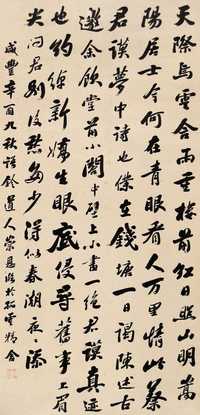 天際烏雲含雨重樓前紅日照山明嵩
陽居士今何在青眼看人萬里情此蔡
君謨夢中詩也僕在錢塘一日謁陳述古
邀余飲堂前小閣中壁上小書一絕君謨真迹
也約綽新嬌生眼底侵尋舊事上眉
尖問君別後愁多少得似春潮夜夜添
咸豐辛酉九秋語鈴道人崇恩臨於雲精舍